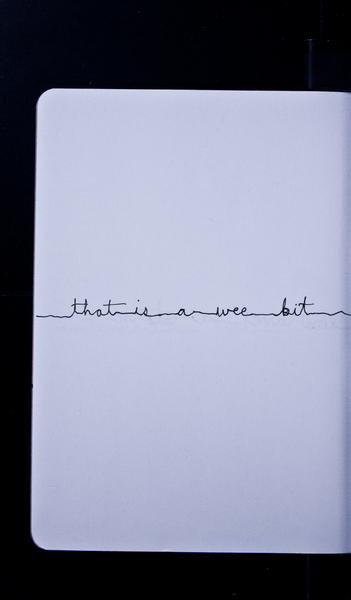 that is a wee bit